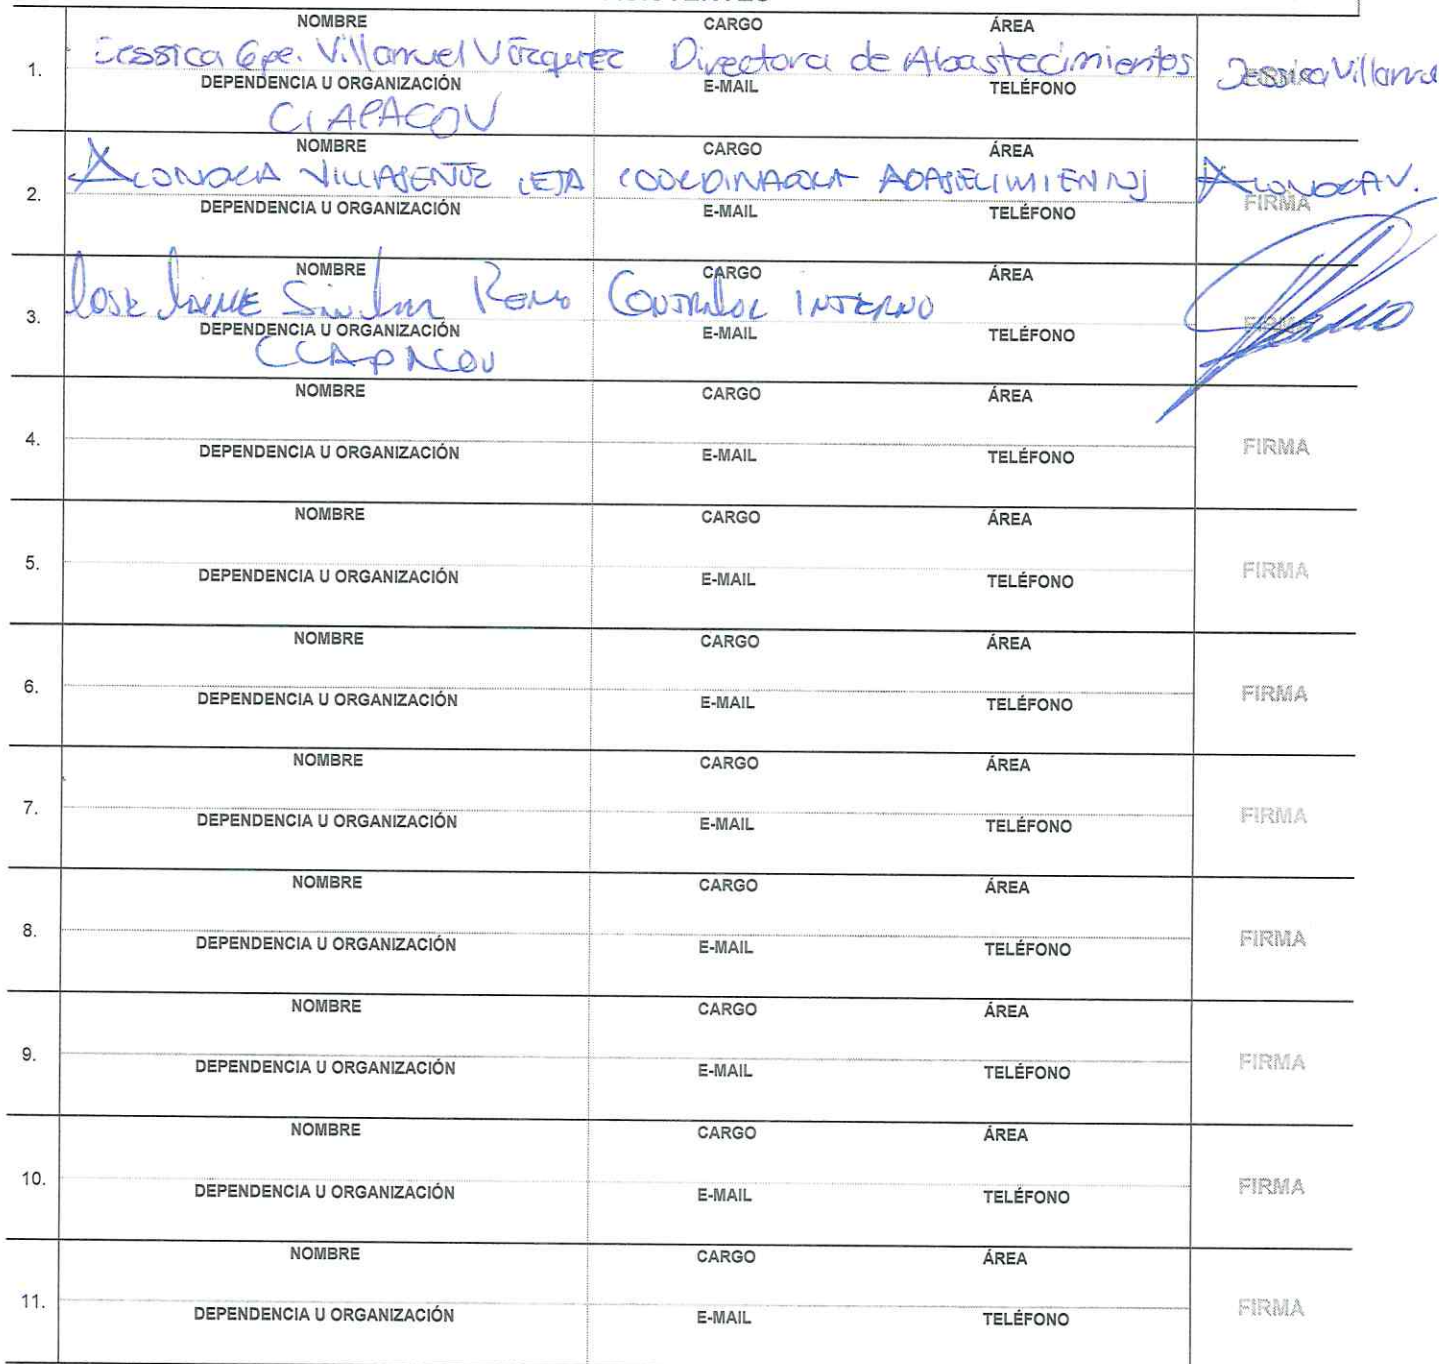 NOMBRE CARGO ÁREA
1. Jessica Gpe. Villanuel Vázquez Directora de Abastecimientos Jessica Villanuel
DEPENDENCIA U ORGANIZACIÓN E-MAIL TELÉFONO
CIAPACOV
NOMBRE CARGO ÁREA
2. COORDINADORA
DEPENDENCIA U ORGANIZACIÓN E-MAIL TELÉFONO FIRMA
NOMBRE CARGO ÁREA
3. José Jaime CONTRALOR INTERNO
DEPENDENCIA U ORGANIZACIÓN E-MAIL TELÉFONO
CIAPACOV
NOMBRE CARGO ÁREA
4. FIRMA
DEPENDENCIA U ORGANIZACIÓN E-MAIL TELÉFONO
NOMBRE CARGO ÁREA
5. FIRMA
DEPENDENCIA U ORGANIZACIÓN E-MAIL TELÉFONO
NOMBRE CARGO ÁREA
6. FIRMA
DEPENDENCIA U ORGANIZACIÓN E-MAIL TELÉFONO
NOMBRE CARGO ÁREA
7. FIRMA
DEPENDENCIA U ORGANIZACIÓN E-MAIL TELÉFONO
NOMBRE CARGO ÁREA
8. FIRMA
DEPENDENCIA U ORGANIZACIÓN E-MAIL TELÉFONO
NOMBRE CARGO ÁREA
9. FIRMA
DEPENDENCIA U ORGANIZACIÓN E-MAIL TELÉFONO
NOMBRE CARGO ÁREA
10. FIRMA
DEPENDENCIA U ORGANIZACIÓN E-MAIL TELÉFONO
NOMBRE CARGO ÁREA
11. FIRMA
DEPENDENCIA U ORGANIZACIÓN E-MAIL TELÉFONO